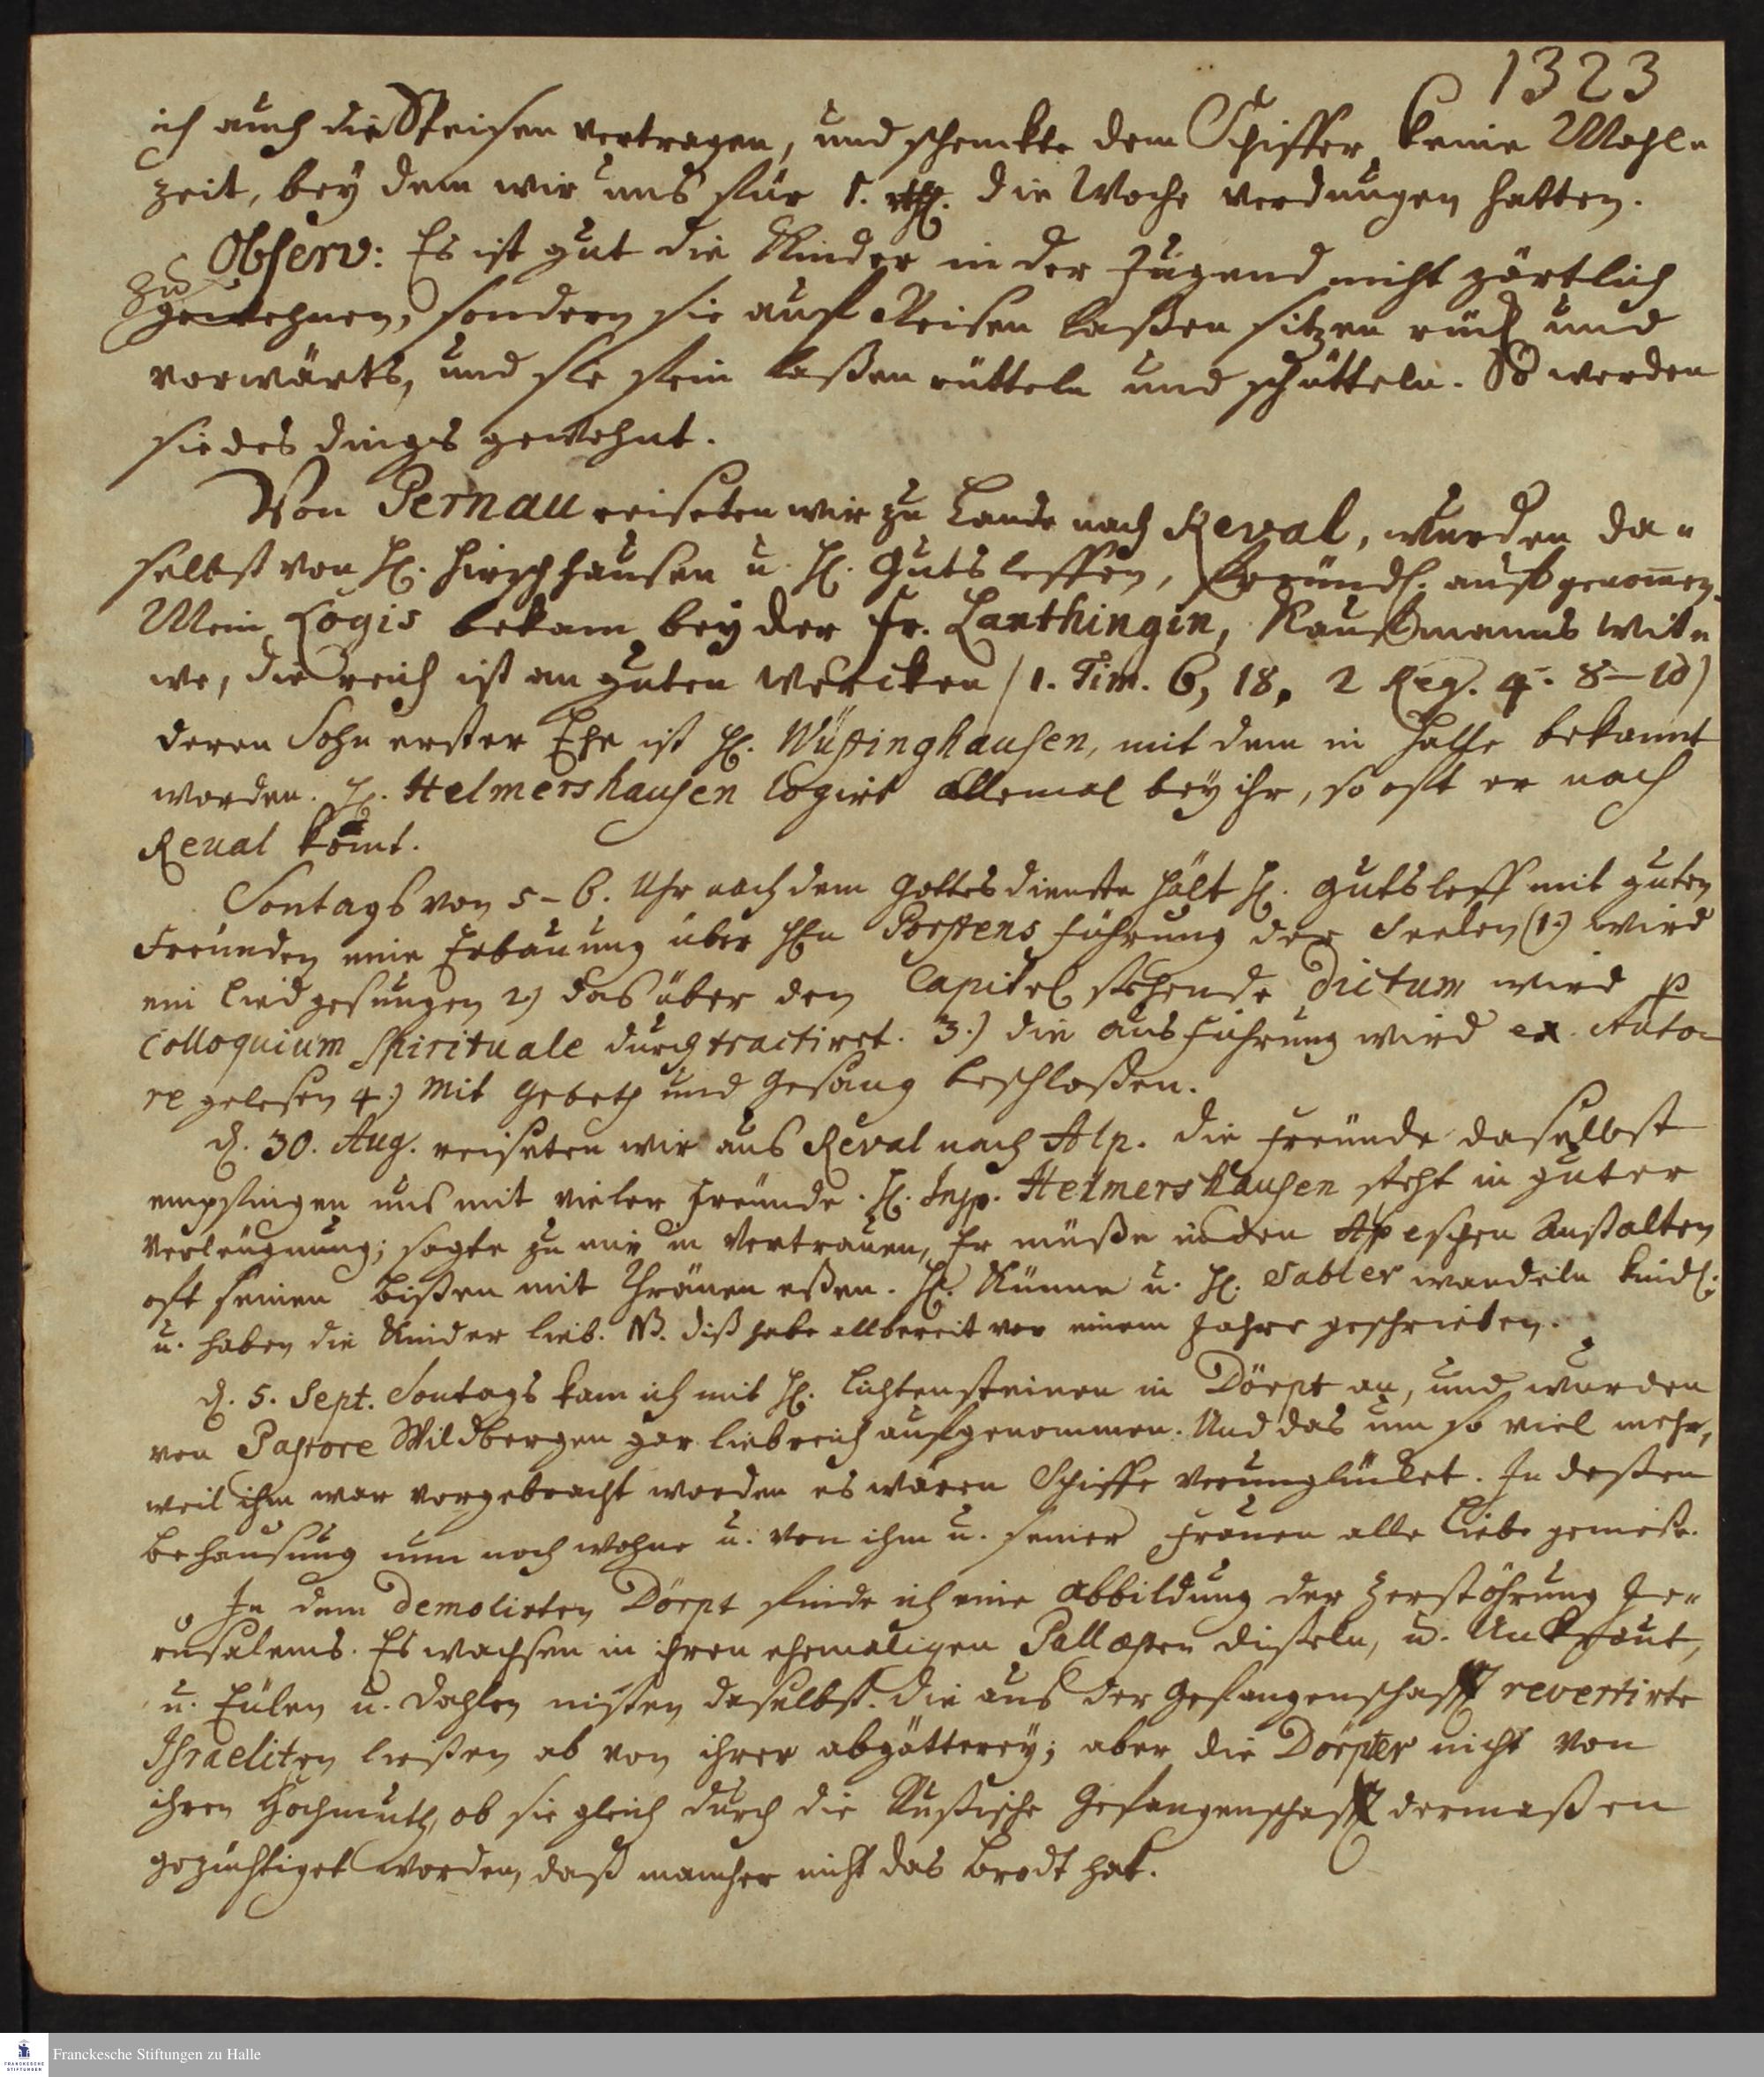 1323
ich auch die Speisen vertragen, und schenckte dem Schiffer keine Mahl„
zeit, bey dem wir uns für 1. rthl. die Woche verdungen hatten.
Observ: Es ist gut die Kinder in der Jugend nicht zärtlich
zu gewehnen, sondern sie auf Reisen laßen sitzen rück und
vorwärts, und sie fein laßen rütteln und schütteln. So werden
sie des dings gewohnt.
Von Pernau reiseten wir zu Lande nach Reval, wurden da„
selbst von H. Hirschhausen u. H. Gutsleffen, freündl. aufgenomen.
Mein Logis bekam bey der Fr. Lanthingin, Kauffmanns Wit„
we, die reich ist an guten Wercken /1. Tim. 6, 18. 2 Reg. 4. 8–10)
deren Sohn erster Ehe ist H. Wüstinghausen, mit dem in Halle bekannt
worden. H. Helmershausen logirt allemal bey ihr, so oft er nach
Reval komt.
Sontags von 5–6. Uhr nach dem Gottesdienste hält H. Gutsleff mit guten
Freunden eine Erbauung über HEn Porstens führung der Seelen (1.) wird
ein Lied gesungen 2) das über den Capitel stehende Dictum wird p
Colloquium spirituale durchtractiret. 3.) die ausführung wird ex. Auto–
re gelesen 4.) Mit Gebeth und Gesang beschloßen.
d. 30. Aug. reiseten wir aus Reval nach Alp. die freünde daselbst
empfingen uns mit vieler Freünde. H. Insp. Helmershausen steht in guter
Verleugnung; sagte zu mir in Vertrauen, Er müße in den Alpeschen Anstalten
oft seinen bißen mit Thränen eßen. H. Künne u. H. Sabler wandeln kindl:
u. haben die Kinder lieb. NB. diß habe allbereit vor einem Jahre geschrieben.
d. 5. Sept. Sontags kam ich mit H. Lichtensteinen in Dörpt an, und wurden
von Pastore Wildbergen gar liebreich aufgenommen. Und das um so viel mehr,
weil ihm war vorgebracht worden es wären Schiffe verunglücket. In deßen
behausung nun noch wohne u. von ihm u. seiner Frauen alle Liebe genieße.
In dem demolirten Dörpt finde ich eine Abbildung der Zerstöhrung Je„
rusalems. Es wachsen in ihren ehemaligen Pallästen dißteln, u. Unkraut,
u. Eülen u. Dohlen nisten daselbst. die aus der Gefangenschafft revertirte
Israeliten ließen ab von ihrer abgötterey; aber die Dörpter nicht von
ihren Hochmuth, ob sie gleich durch die Rußische Gefangenschafft dermaßen
gezüchtiget worden, daß mancher nicht das brodt hat.
Franckesche Stiftungen zu Halle
FRANCKESCHE
STIFTUNGEN